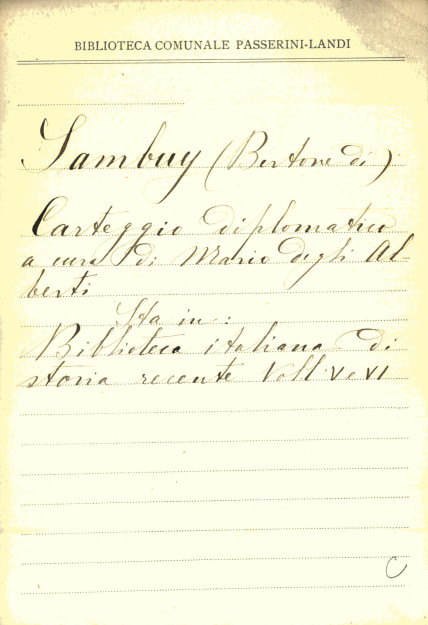 BIBLIOTECA COMUNALE PASSERINI-LANDI
Sambuy (Bertone di)
Carteggio diplomatico
a cura di Mario degli Al-
berti
Sta in:
Biblioteca italiana di
storia recente Voll V e VI
C